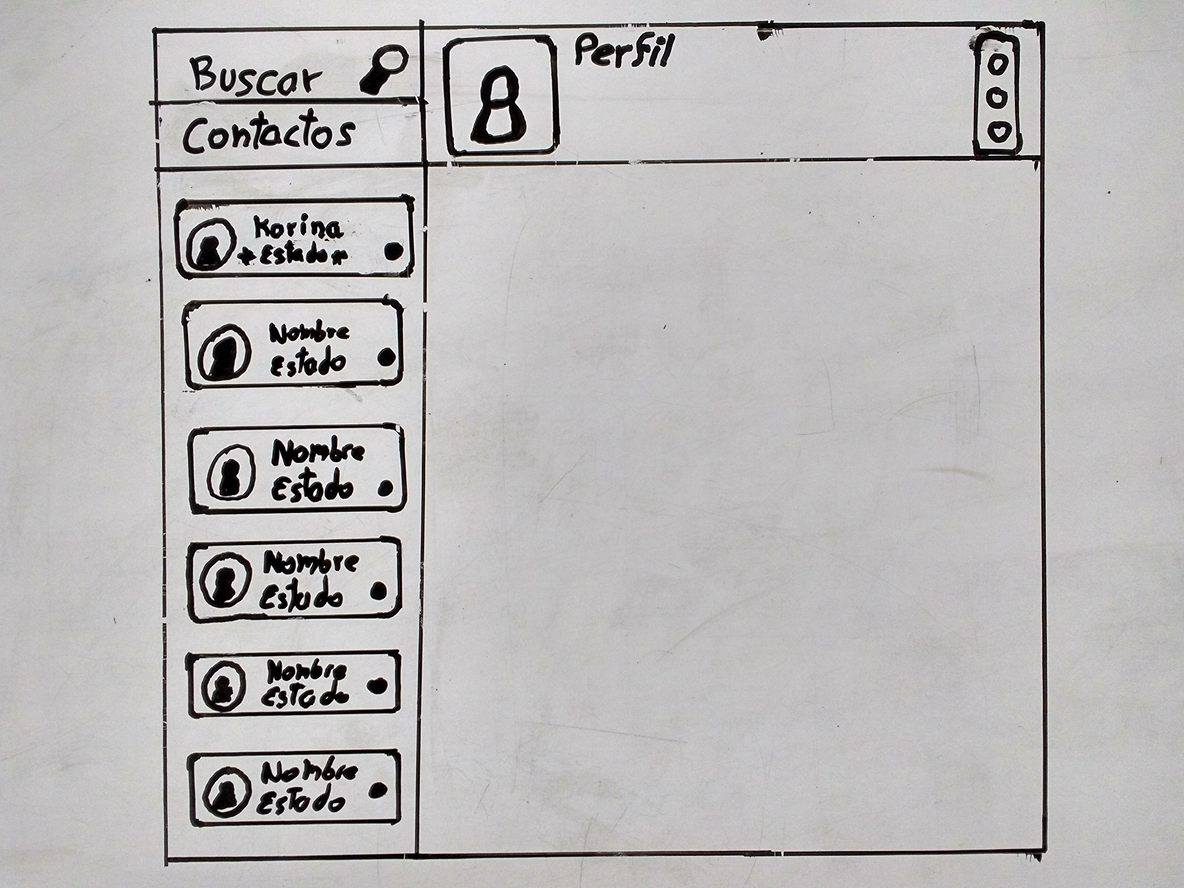 Buscar
Contactos
Perfil
Korina
*Estado*
Nombre
Estado
Nombre
Estado
Nombre
Estado
Nombre
Estado
Nombre
Estado